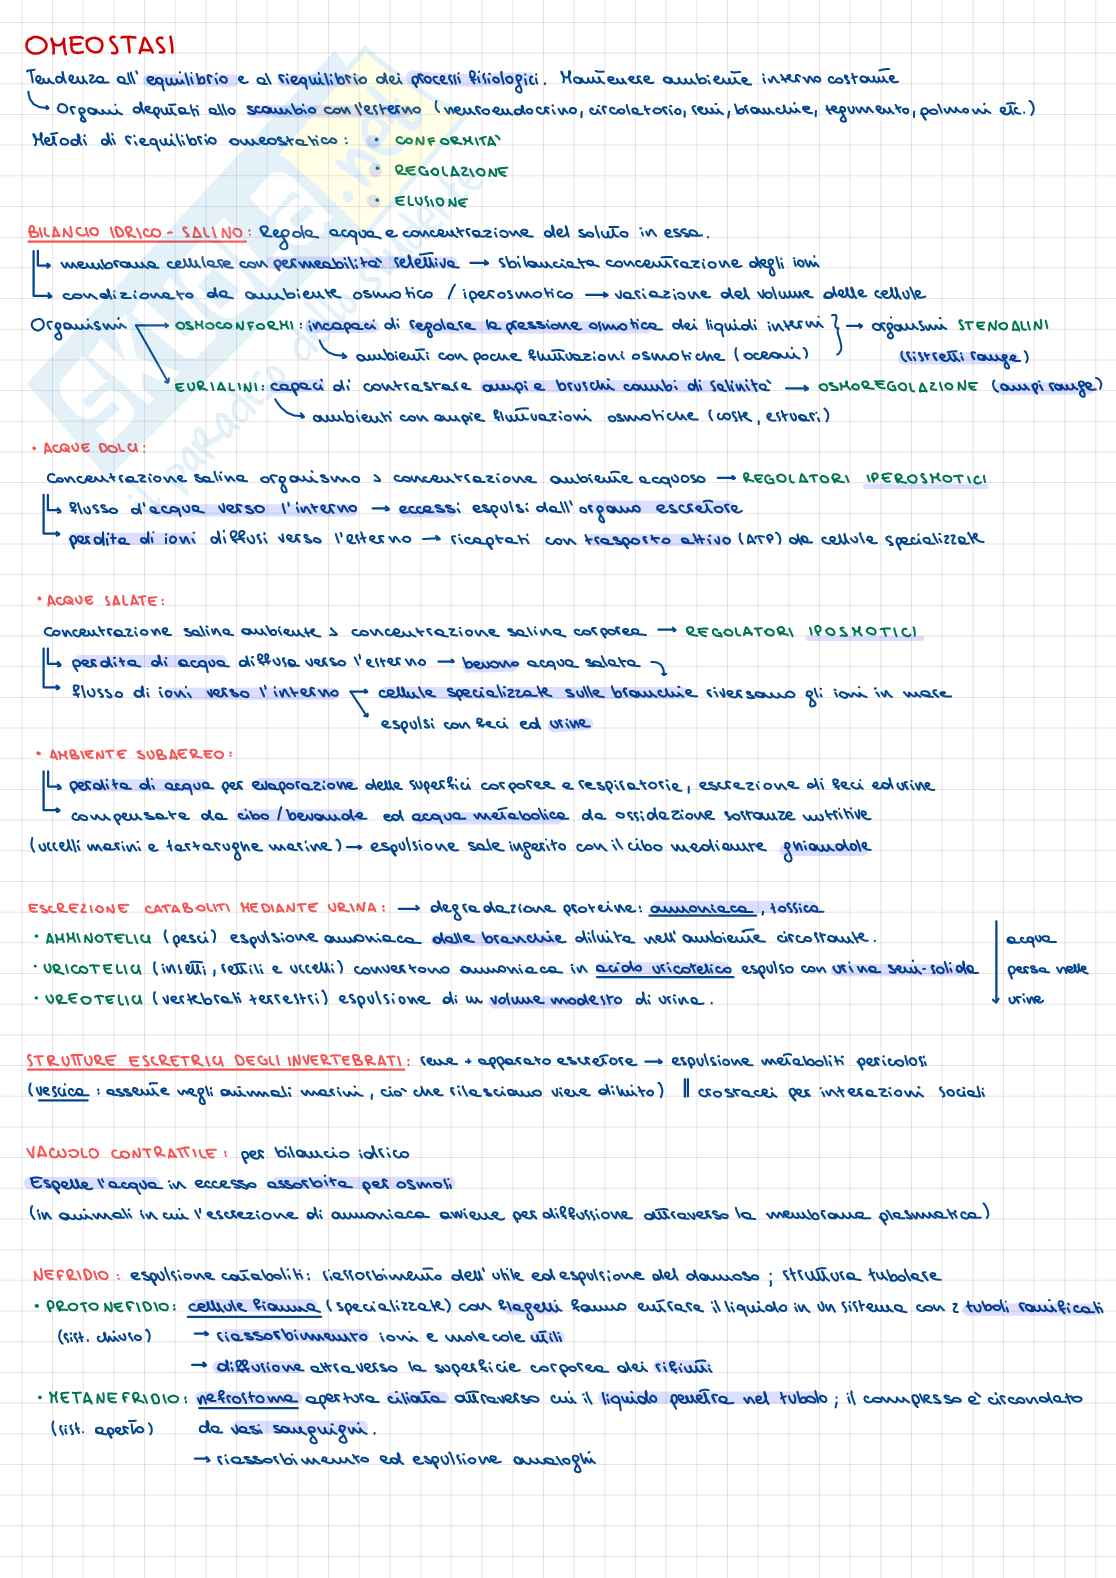 OMEOSTASI
Tendenza all'equilibrio e al riequilibrio dei processi fisiologici. Mantenere ambiente interno costante
↳ Organi deputati allo scambio con l'esterno (neuroendocrino, circolatorio, reni, branchie, tegumento, polmoni etc.)
Metodi di riequilibrio omeostatico: • CONFORMITA'
• REGOLAZIONE
• ELUSIONE
BILANCIO IDRICO-SALINO: Regola acqua e concentrazione del soluto in essa.
↳ membrana cellulare con permeabilita' selettiva → sbilanciata concentrazione degli ioni
↳ condizionato da ambiente osmotico / iperosmotico → variazione del volume delle cellule
Organismi → OSMOCONFORMI: incapaci di regolare la pressione osmotica dei liquidi interni } → organismi STENOALINI
↳ ambienti con poche fluttuazioni osmotiche (oceani) (ristretti range)
EURIALINI: capaci di contrastare ampi e bruschi cambi di salinita' → OSMOREGOLAZIONE (ampi range)
↳ ambienti con ampie fluttuazioni osmotiche (coste, estuari)
• ACQUE DOLCI:
Concentrazione salina organismo > concentrazione ambiente acquoso → REGOLATORI IPEROSMOTICI
↳ flusso d'acqua verso l'interno → eccessi espulsi dall'organo escretore
↳ perdita di ioni diffusi verso l'esterno → ricaptati con trasporto attivo (ATP) da cellule specializzate
• ACQUE SALATE:
Concentrazione salina ambiente > concentrazione salina corporea → REGOLATORI IPOSMOTICI
↳ perdita di acqua diffusa verso l'esterno → bevono acqua salata
↳ flusso di ioni verso l'interno → cellule specializzate sulle branchie riversano gli ioni in mare
espulsi con feci ed urine
• AMBIENTE SUBAEREO:
↳ perdita di acqua per evaporazione delle superfici corporee e respiratorie, escrezione di feci ed urine
↳ compensata da cibo / bevande ed acqua metabolica da ossidazione sostanze nutritive
(uccelli marini e tartarughe marine) → espulsione sale ingerito con il cibo mediante ghiandole
ESCREZIONE CATABOLITI MEDIANTE URINA: → degradazione proteine: ammoniaca, tossica
• AMMINOTELICI (pesci) espulsione ammoniaca dalle branchie diluita nell'ambiente circostante. acqua
• URICOTELICI (insetti, rettili e uccelli) convertono ammoniaca in acido uricotelico espulso con urina semi-solida persa nelle
• UREOTELICI (vertebrati terrestri) espulsione di un volume modesto di urina. urine
STRUTTURE ESCRETRICI DEGLI INVERTEBRATI: rene + apparato escretore → espulsione metaboliti pericolosi
(vescica: assente negli animali marini, cio' che rilasciano viene diluito) || crostacei per interazioni sociali
VACUOLO CONTRATTILE: per bilancio idrico
Espelle l'acqua in eccesso assorbita per osmoli
(in animali in cui l'escrezione di ammoniaca avviene per diffusione attraverso la membrana plasmatica)
NEFRIDIO: espulsione cataboliti: riassorbimento dell'utile ed espulsione del dannoso; struttura tubolare
• PROTONEFIDIO: cellule fiamma (specializzate) con flagelli fanno entrare il liquido in un sistema con 2 tuboli ramificati
(sist. chiuso) → riassorbimento ioni e molecole utili
→ diffusione attraverso la superficie corporea dei rifiuti
• METANEFRIDIO: nefrostoma apertura ciliata attraverso cui il liquido penetra nel tubolo; il complesso e' circondato
(sist. aperto) da vasi sanguigni.
→ riassorbimento ed espulsione analoghi